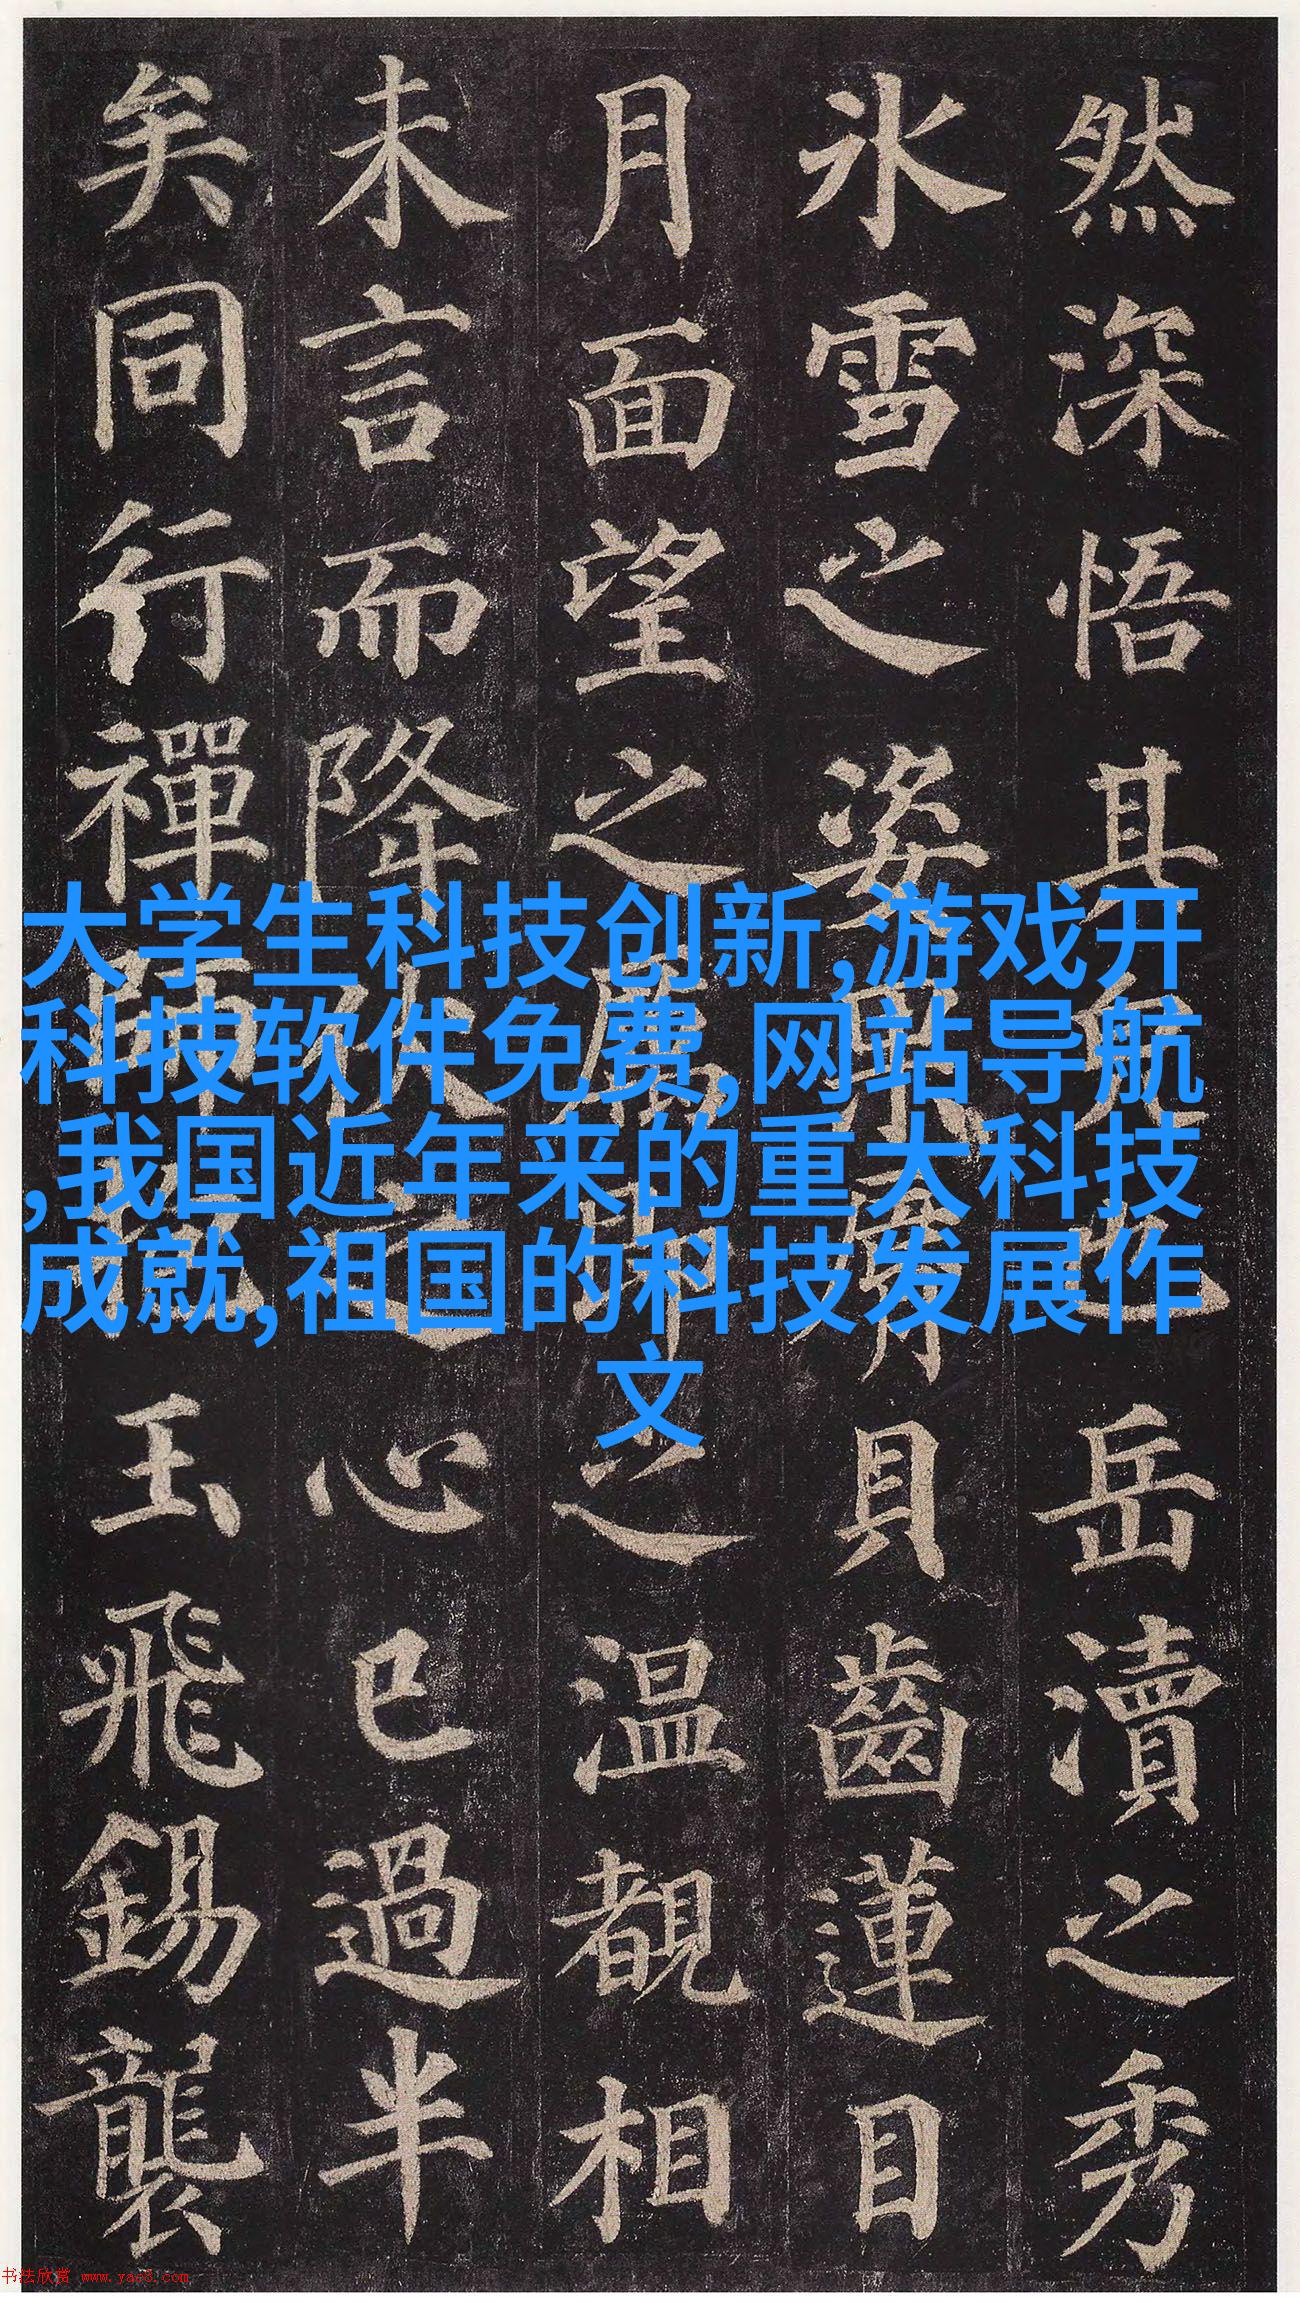 然深悟其先也岳瀆之秀
氷雪之姿果脣貝齒蓮目
月面望之厲即之温覩相
未言而降伏之心已過半
矣同行禪師抱玉飛錫襲
大学生科技创新,游戏开
科技软件免费,网站导航
,我国近年来的重大科技
成就,祖国的科技发展作
文
书法欣赏 www.yac8.com